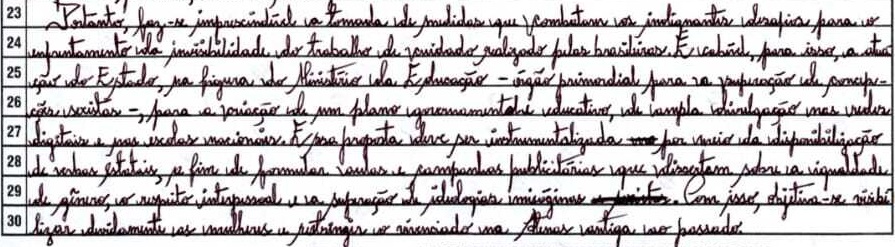 23 Portanto, faz-se imprescindível a tomada de medidas que combatam os indignantes desafios para o
24 enfrentamento da invisibilidade do trabalho de cuidado realizado pelas brasileiras. É cabível, para isso, a atua
25 ção do Estado, na figura do Ministério da Educação – órgão primordial para a superação de concep-
26 ções sexistas –, para a criação de um plano governamental e educativo, de ampla divulgação nas redes
27 digitais e nas escolas nacionais. Essa proposta deve ser instrumentalizada por meio da disponibilização
28 de verbas estatais, a fim de formular aulas e campanhas publicitárias que dissertam sobre a igualdade
29 de gênero, o respeito interpessoal e a superação de ideologias misóginas. Com isso, objetiva-se visibi
30 lizar devidamente as mulheres e restringir o vivenciado na Atenas antiga ao passado.